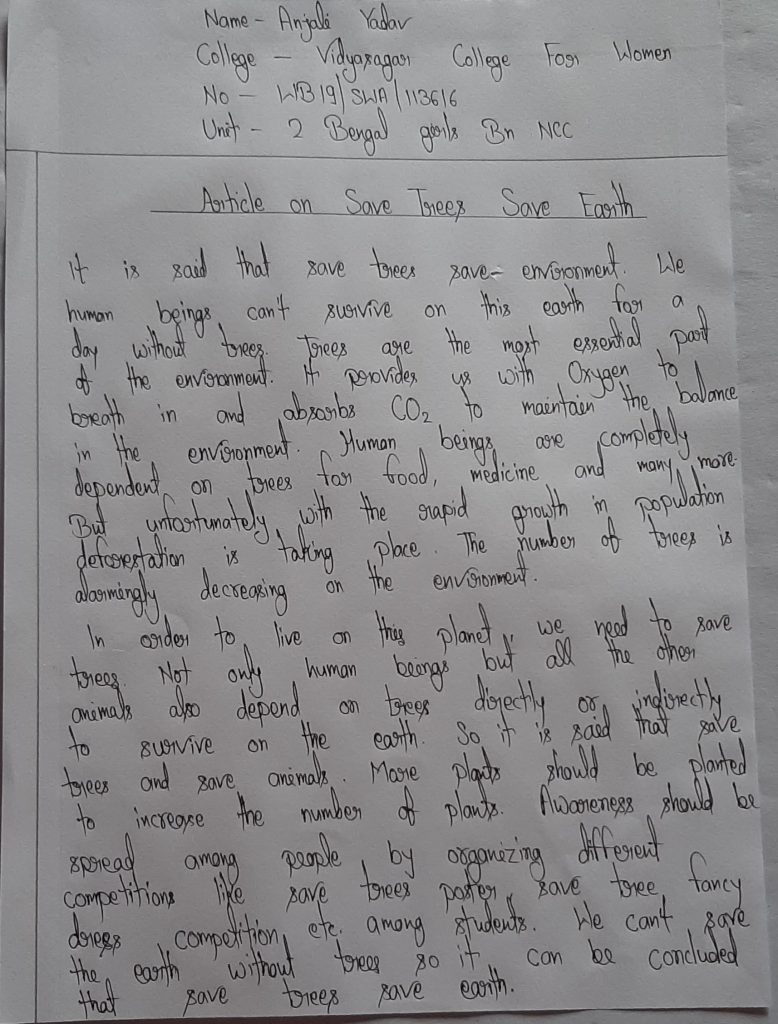 Name - Anjali Yadav
College - Vidyasagar College For Women
No - WB19/SWA/113616
Unit - 2 Bengal girls Bn NCC
Article on Save Trees Save Earth
It is said that save trees save environment. We
human beings can't survive on this earth for a
day without trees. Trees are the most essential part
of the environment. It provides us with Oxygen to
breath in and absorbs CO₂ to maintain the balance
in the environment. Human beings are completely
dependent on trees for food, medicine and many more.
But unfortunately, with the rapid growth in population
deforestation is taking place. The number of trees is
alarmingly decreasing on the environment.
In order to live on this planet, we need to save
trees. Not only human beings but all the other
animals also depend on trees directly or indirectly
to survive on the earth. So it is said that save
trees and save animals. More plants should be planted
to increase the number of plants. Awareness should be
spread among people by organizing different
competitions like save trees poster, save tree fancy
dress competition, etc. among students. We can't save
the earth without trees so it can be concluded
that save trees save earth.